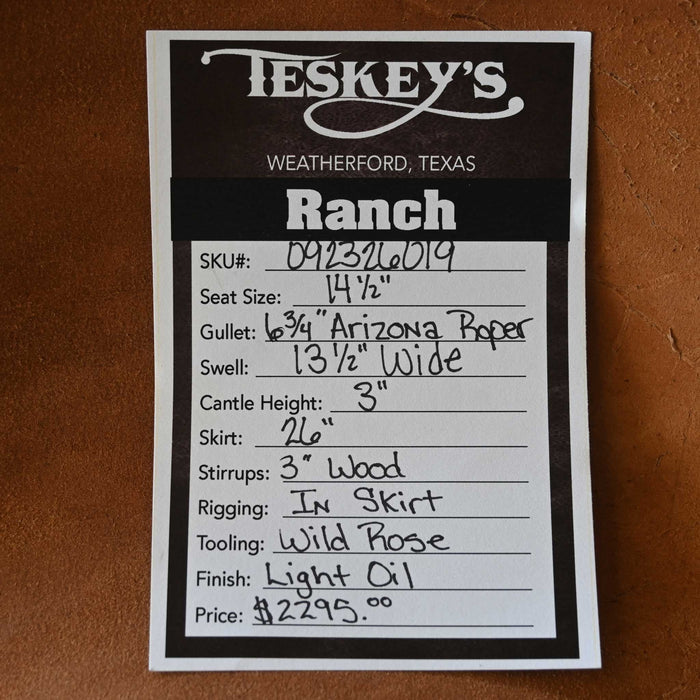 TESKEY'S
WEATHERFORD, TEXAS
Ranch
SKU#: 092326019
Seat Size: 14 1/2"
Gullet: 6 3/4" Arizona Roper
Swell: 13 1/2" Wide
Cantle Height: 3"
Skirt: 26"
Stirrups: 3" Wood
Rigging: IN Skirt
Tooling: Wild Rose
Finish: Light Oil
Price: $2295.00